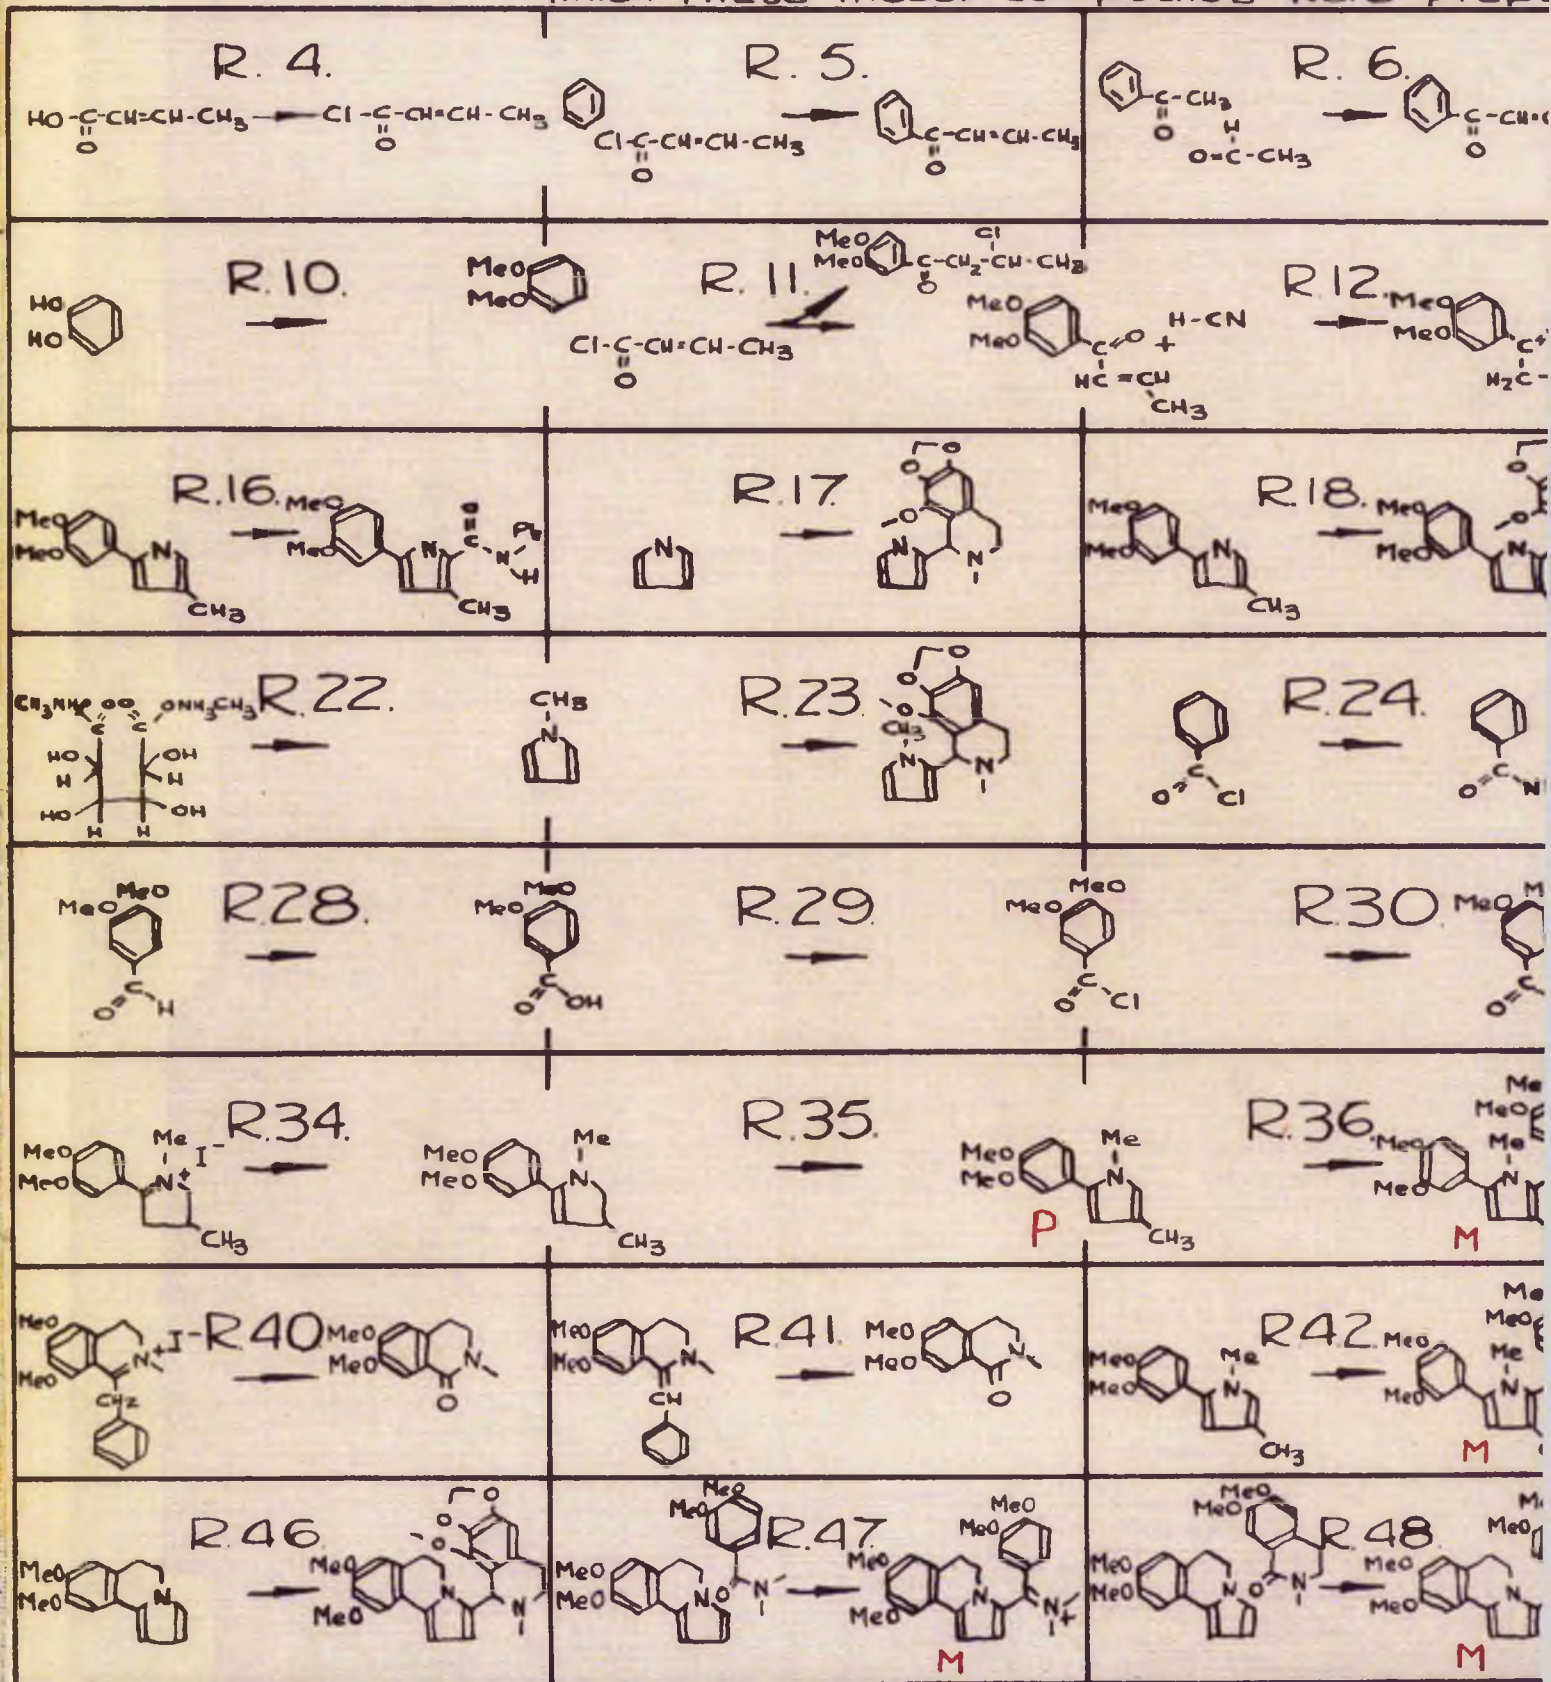 R. 4.
HO-C-CH=CH-CH3
O
Cl-C-CH=CH-CH3
O
R. 5.
Cl-C-CH=CH-CH3
O
C-CH=CH-CH3
O
R. 6.
C-CH3
O
H
O=C-CH3
O
R.10.
HO
HO
MeO
MeO
R. 11.
Cl-C-CH=CH-CH3
O
Cl
MeO
MeO
C-CH2-CH-CH3
O
R.12.
MeO
MeO
C=O + H-CN
HC=CH
CH3
MeO
MeO
H2C-
R.16.
MeO
MeO
N
CH3
MeO
MeO
N
O
C
N
H
CH3
R.17.
N
O O
O
N
N
R.18.
MeO
MeO
N
CH3
MeO
MeO
O
O
N
R.22.
ONH3CH3
HO OH
H H
HO OH
H H
CH3
N
R.23.
O
O
O
CH3
N
N
R.24.
C
O Cl
C
O N
R.28.
MeO
MeO
C
O H
MeO
MeO
C
O OH
R.29.
MeO
MeO
C
O Cl
R.30.
MeO
C
O
R.34.
MeO
MeO
Me
N+
I-
CH3
MeO
MeO
Me
N
CH3
R.35.
MeO
MeO
Me
N
CH3
P
R.36.
Me
MeO
MeO
MeO
Me
N
M
R.40.
MeO
MeO
N+
I-
CH2
MeO
MeO
N
O
R.41.
MeO
MeO
N
CH
MeO
MeO
N
O
R.42.
MeO
MeO
Me
N
CH3
Me
MeO
MeO
MeO
Me
N
M
R.46
MeO
MeO
N
MeO
MeO
O
O
O
N
N
R.47.
MeO
MeO
MeO
MeO
N
O
N
MeO
MeO
MeO
MeO
N
N+
M
R.48.
MeO
MeO
MeO
MeO
N
O
N
MeO
MeO
MeO
N
M